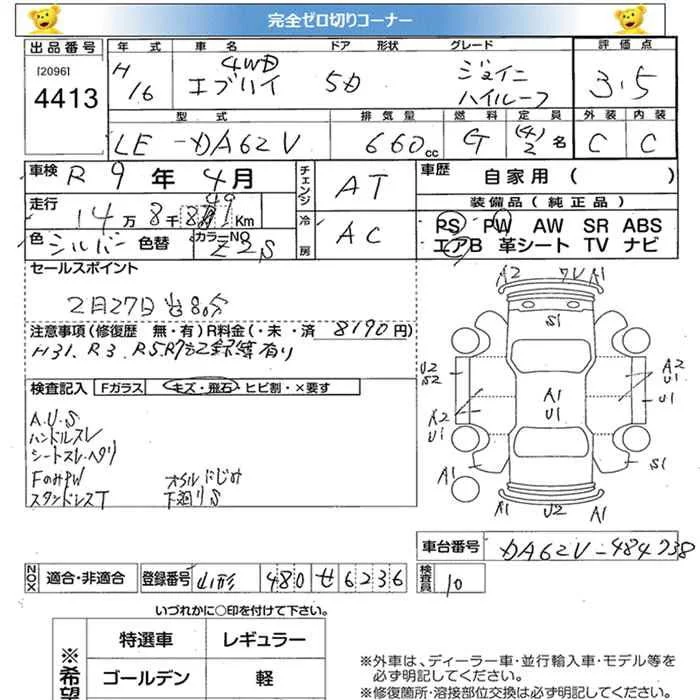 完全ゼロ切りコーナー
出品番号 年式 車名 ドア 形状 グレード 評価点
[2096]
4413
H 16 4WD エブリイ 5D ジョイン ハイルーフ 3.5
型式 排気量 燃料 定員 外装 内装
LE-DA62V 660cc G (4) 2名 C C
車検 R 9年 4月 チェンジ AT 車歴 自家用 ( )
走行 14万8千 Km 冷房 AC 装備品(純正品)
PS PW AW SR ABS
色 シルバー 色替 カラーNO Z2S エアB 革シート TV ナビ
セールスポイント
2月27日
注意事項(修復歴 無・有)R料金(・未・済 8190円)
H31. R3. R5. R7 記録簿有り
検査記入 Fガラス キズ・飛石 ヒビ割・×要す
A.U.S
ハンドルスレ
シートスレ・ヘタリ
FのみPW オイルにじみ
スタンドレスT 下廻りS
A2 A1
S1
U2 S2 A2 U1
A1 U1 U1
A2 U1
A1 S1
A1 U2 A1
車台番号 DA62V-484738
NOX 適合・非適合 登録番号 山形 480 せ 6236 検査員 10
いづれかに○印を付けて下さい。
※希望 特選車 レギュラー
ゴールデン 軽
※外車は、ディーラー車・並行輸入車・モデル等を
必ず明記してください。
※修復箇所・溶接部位交換は必ず明記してください。